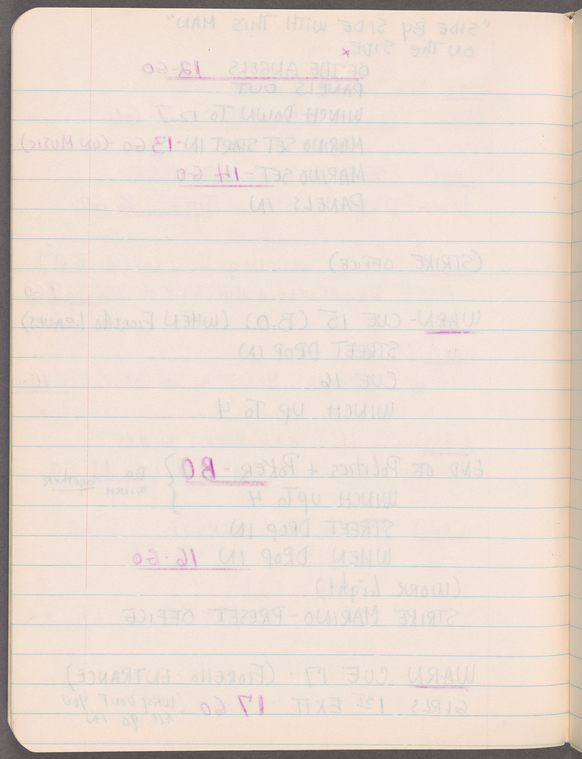 "SIDE BY SIDE WITH THIS MAN"
ON THE SIDE
OF THE ANGELS 12-GO
PANELS OUT
WINCH DOWN TO 12
MARINO SET START IN-13 GO (ON MUSIC)
MARINO SET-14 GO
PANELS IN
(STRIKE OFFICE)
WARN-CUE 15 (B.O) (WHEN Fiorello LEAVES)
" STREET DROP IN
CUE 16
WINCH UP TO 4
END OF POLITICS + POKER - BO
WINCH UP TO 4
together
STREET DROP IN
WHEN DROP IN 16-GO
(WORK Light)
STRIKE MARINO-PRESET OFFICE
WARN CUE 17 (Fiorello ENTRANCE)
GIRLS 1ST EXIT 17 GO (WHY DON'T YOU
ALL GO IN